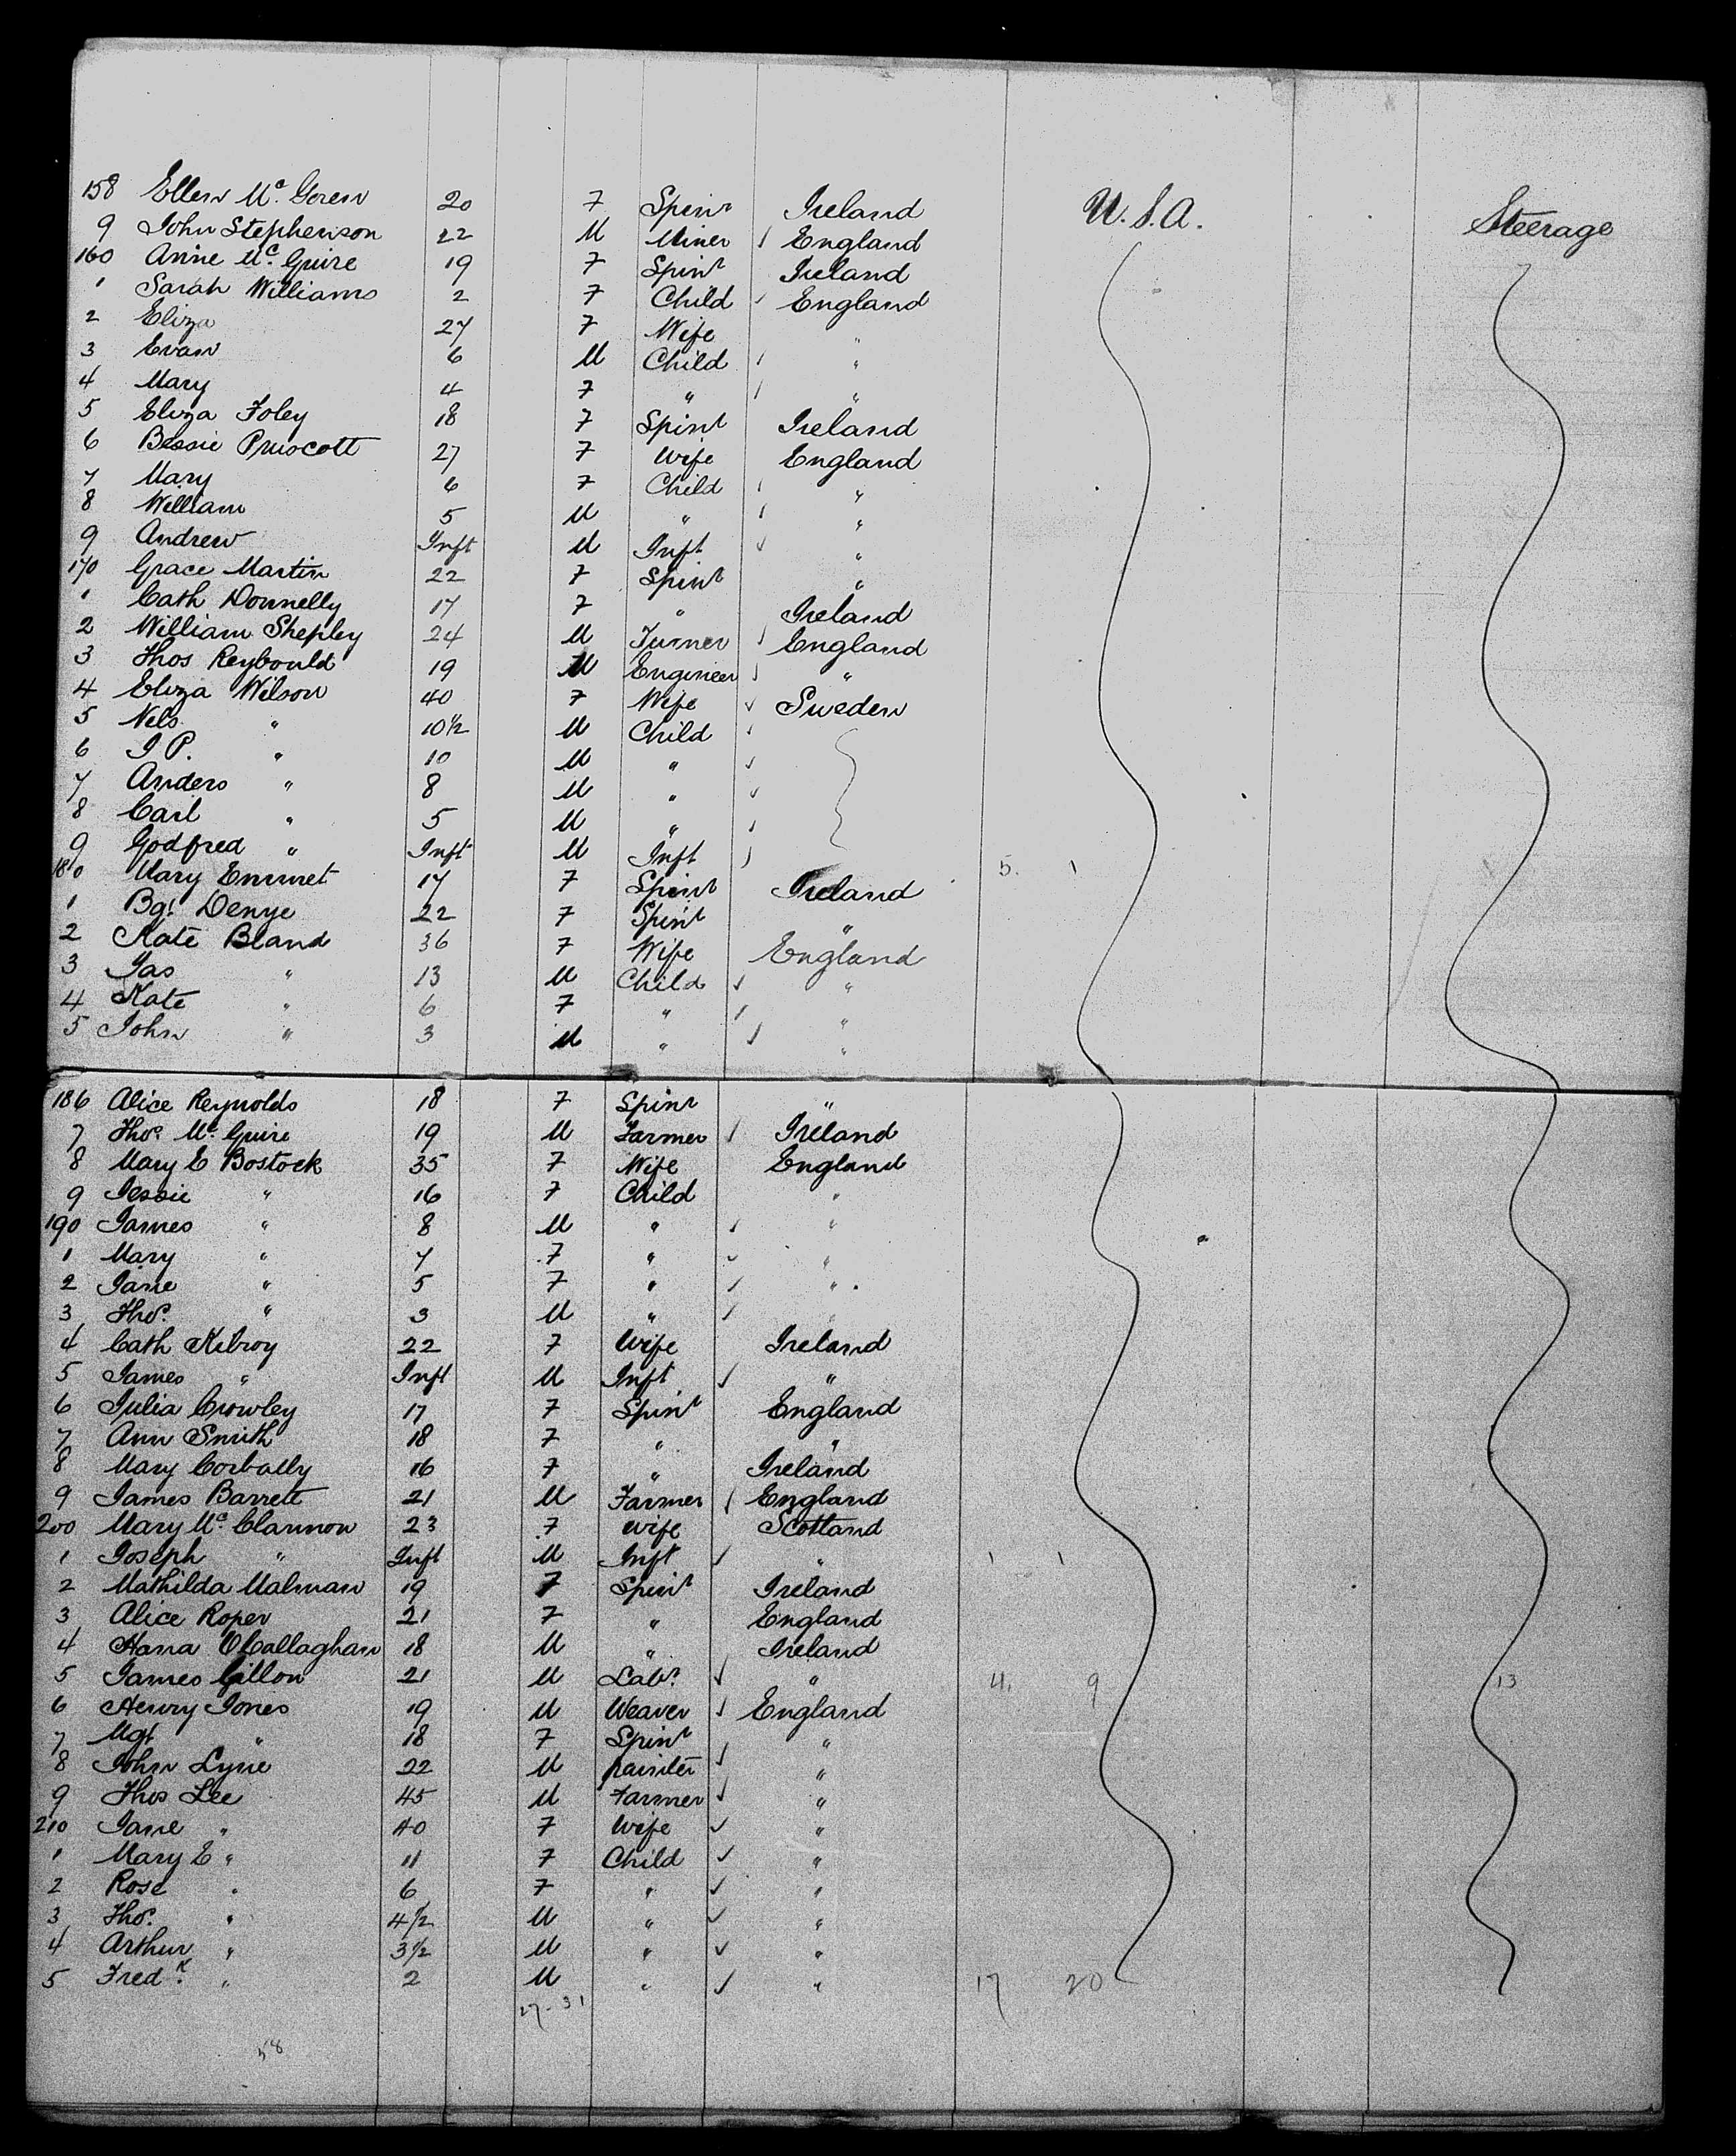 158 Ellen Mc. Goren 20 F Spinr Ireland U.S.A. Steerage
9 John Stephenson 22 M Miner England
160 Anne Mc. Guire 19 F Spinr Ireland
1 Sarah Williams 2 F Child England
2 Eliza 27 F Wife "
3 Evan 6 M Child "
4 Mary 4 F " "
5 Eliza Foley 18 F Spinr Ireland
6 Bessie Pruscott 27 F Wife England
7 Mary 6 F Child "
8 William 5 M " "
9 Andrew Inft M Inft "
170 Grace Martin 22 F Spinr "
1 Cath Donnelly 17 F " Ireland
2 William Shepley 24 M Turner England
3 Thos Reybould 19 M Engineer "
4 Eliza Wilson 40 F Wife Sweden
5 Nels " 10½ M Child
6 I P. " 10 M "
7 Anders " 8 M "
8 Carl " 5 M "
9 Godfred " Inft M Inft
180 Mary Emmet 17 F Spinr Ireland 5. 1
1 Bgt. Denye 22 F Spinr "
2 Kate Bland 36 F Wife England
3 Jas " 13 M Child "
4 Kate " 6 F " "
5 John " 3 M " "
186 Alice Reynolds 18 F Spinr "
7 Thos. Mc. Guire 19 M Farmer Ireland
8 Mary E Bostock 35 F Wife England
9 Jessie " 16 F Child "
190 James " 8 M " "
1 Mary " 7 F " "
2 Jane " 5 F " "
3 Thos. " 3 M "
4 Cath Kilroy 22 F Wife Ireland
5 James " Inft M Inft "
6 Julia Crowley 17 F Spinr England
7 Ann Smith 18 F " "
8 Mary Corbally 16 F " Ireland
9 James Barrett 21 M Farmer England
200 Mary Mc. Clannon 23 F Wife Scotland
1 Joseph " Inft M Inft " 1 1
2 Mathilda Malman 19 F Spinr Ireland
3 Alice Roper 21 F " England
4 Hana O'Callaghan 18 M " Ireland
5 James Gillon 21 M Labr. " 4. 9 13
6 Henry Jones 19 M Weaver England
7 Mgt " 18 F Spinr "
8 John Lyne 22 M painter "
9 Thos Lee 45 M Farmer "
210 Jane " 40 F Wife "
1 Mary E " 11 F Child "
2 Rose " 6 F " "
3 Thos. " 4½ M " "
4 Arthur " 3½ M " "
5 Fredk. " 2 M " " 17 20
27-31
58